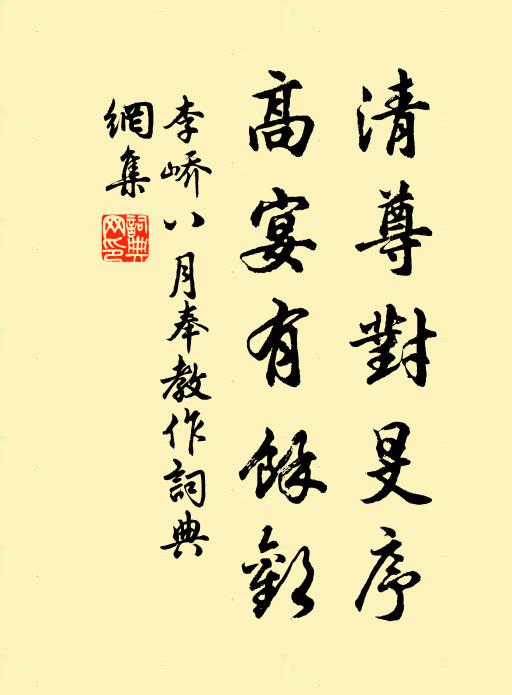 清尊對旻序
高宴有餘歡
李峤八月奉教作詞典
網集
詞典網印